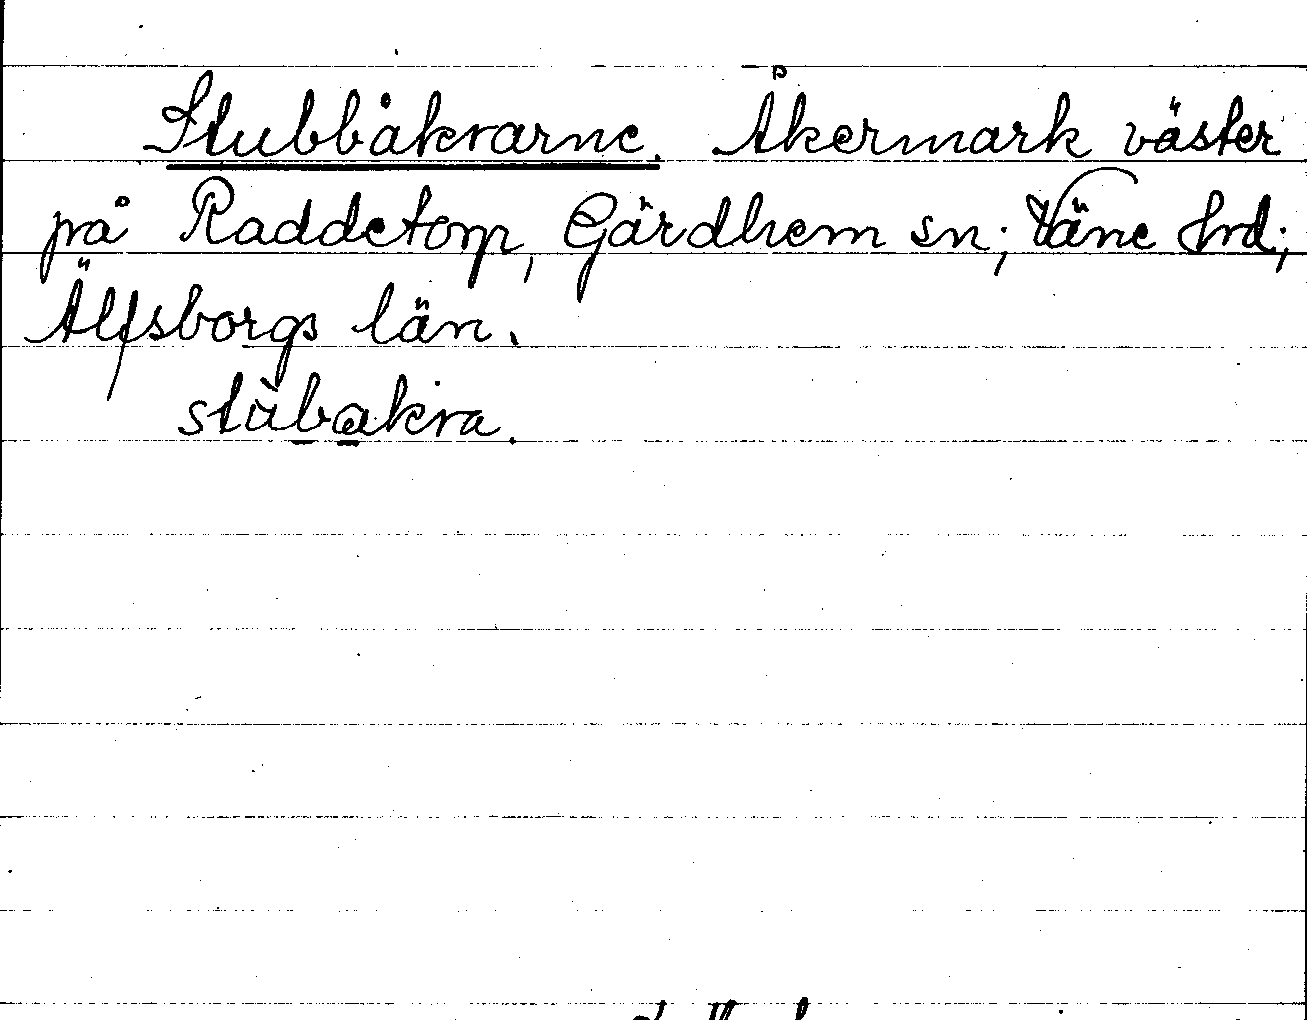 Stubbåkrarne. Åkermark väster
på Raddetorp, Gärdhem sn; Väne hrd;
Älfsborgs län.
stùbakra.